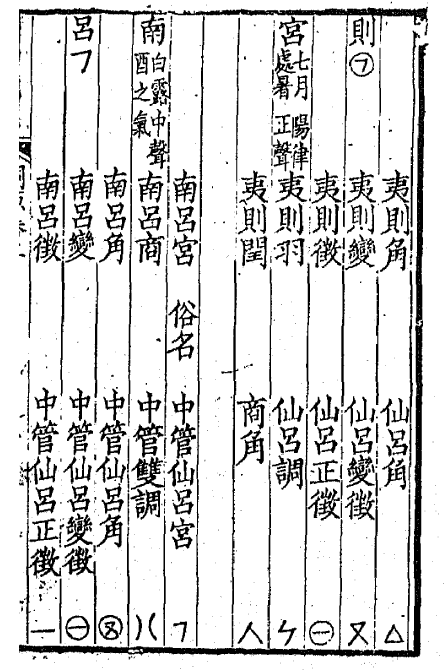 夷則角 仙呂角 △
則㋆ 夷則變 仙呂變徵 又
夷則徵 仙呂正徵 ㊀
宮 七月 陽律 處暑 正聲 夷則羽 仙呂調 ㄣ
夷則閏 商角 人
南呂宮 俗名 中管仙呂宮 ㇆
南 白露 中聲 酉之氣 南呂商 中管雙調 〣
南呂角 中管仙呂角
呂㇆ 南呂變 中管仙呂變徵 ㊀
南呂徵 中管仙呂正徵 一